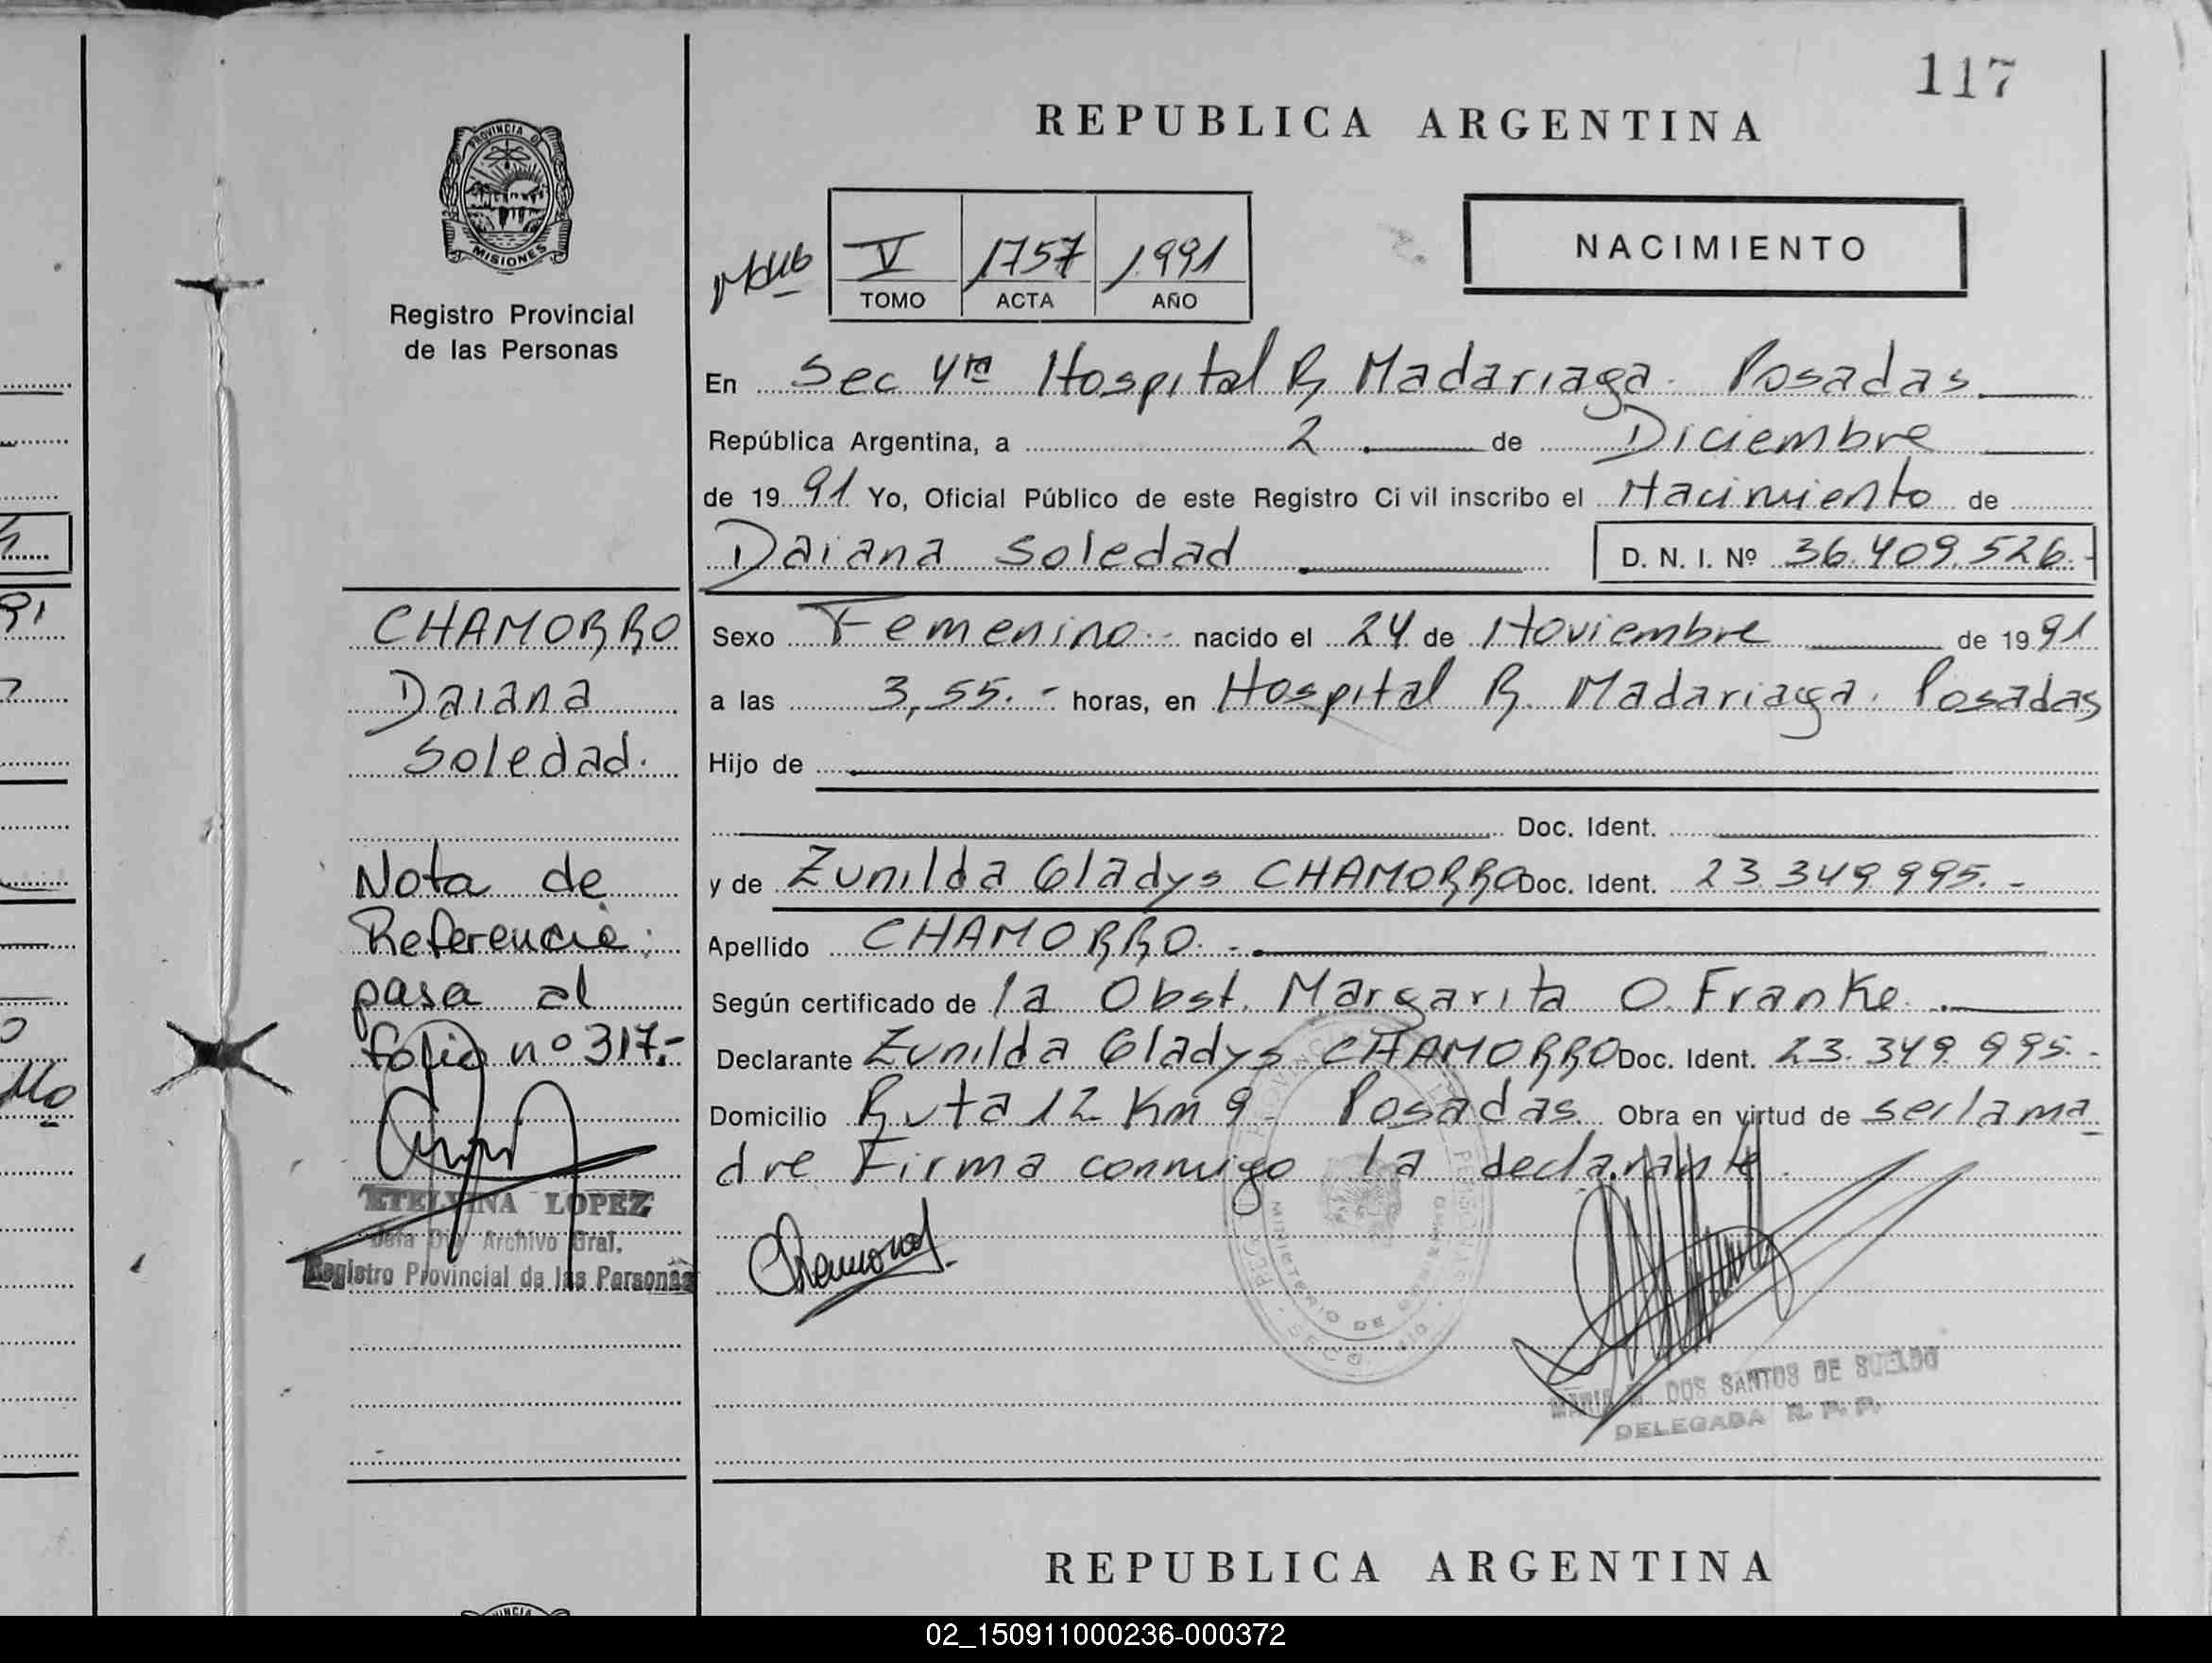 117
REPUBLICA ARGENTINA
PROVINCIA DE
MISIONES
Registro Provincial
de las Personas
V 1757 1991
TOMO ACTA AÑO
NACIMIENTO
En Sec 4ta Hospital R Madariaga. Posadas
República Argentina, a 2 de Diciembre
de 1991 Yo, Oficial Público de este Registro Ci vil inscribo el Nacimiento de
Daiana Soledad D. N. I. Nº 36.409.526.-
CHAMORRO
Daiana
Soledad.
Sexo Femenino.- nacido el 24 de Noviembre de 1991
a las 3,55.- horas, en Hospital R. Madariaga. Posadas
Hijo de
Doc. Ident.
y de Zunilda Gladys CHAMORRO Doc. Ident. 23.349.995.-
Apellido CHAMORRO.-
Según certificado de la Obst. Margarita O. Franke.
Declarante Zunilda Gladys CHAMORRO Doc. Ident. 23.349.995.-
Domicilio Ruta 12 Km 9. Posadas. Obra en virtud de ser la ma
dre Firma conmigo la declarante.
Nota de
Referencia:
pasa al
folio nº 317.-
ETELVINA LOPEZ
Jefa Div Archivo Gral.
Registro Provincial de las Personas
Chamorro
MINISTERIO DE GOBIERNO
MARIA DOS SANTOS DE SUELDO
DELEGADA R. P. P.
REPUBLICA ARGENTINA
02_150911000236-000372